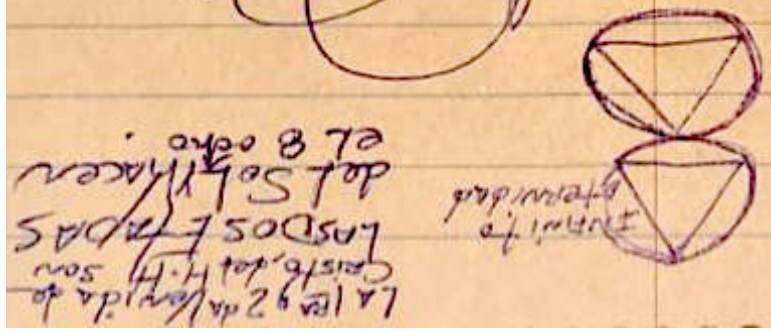 La 1RA y 2da Venida de
Cristo, del H.H son
LAS DOS ETAPAS
del Sol y Hacen
el 8 ocho.
INFINITO
eternidad